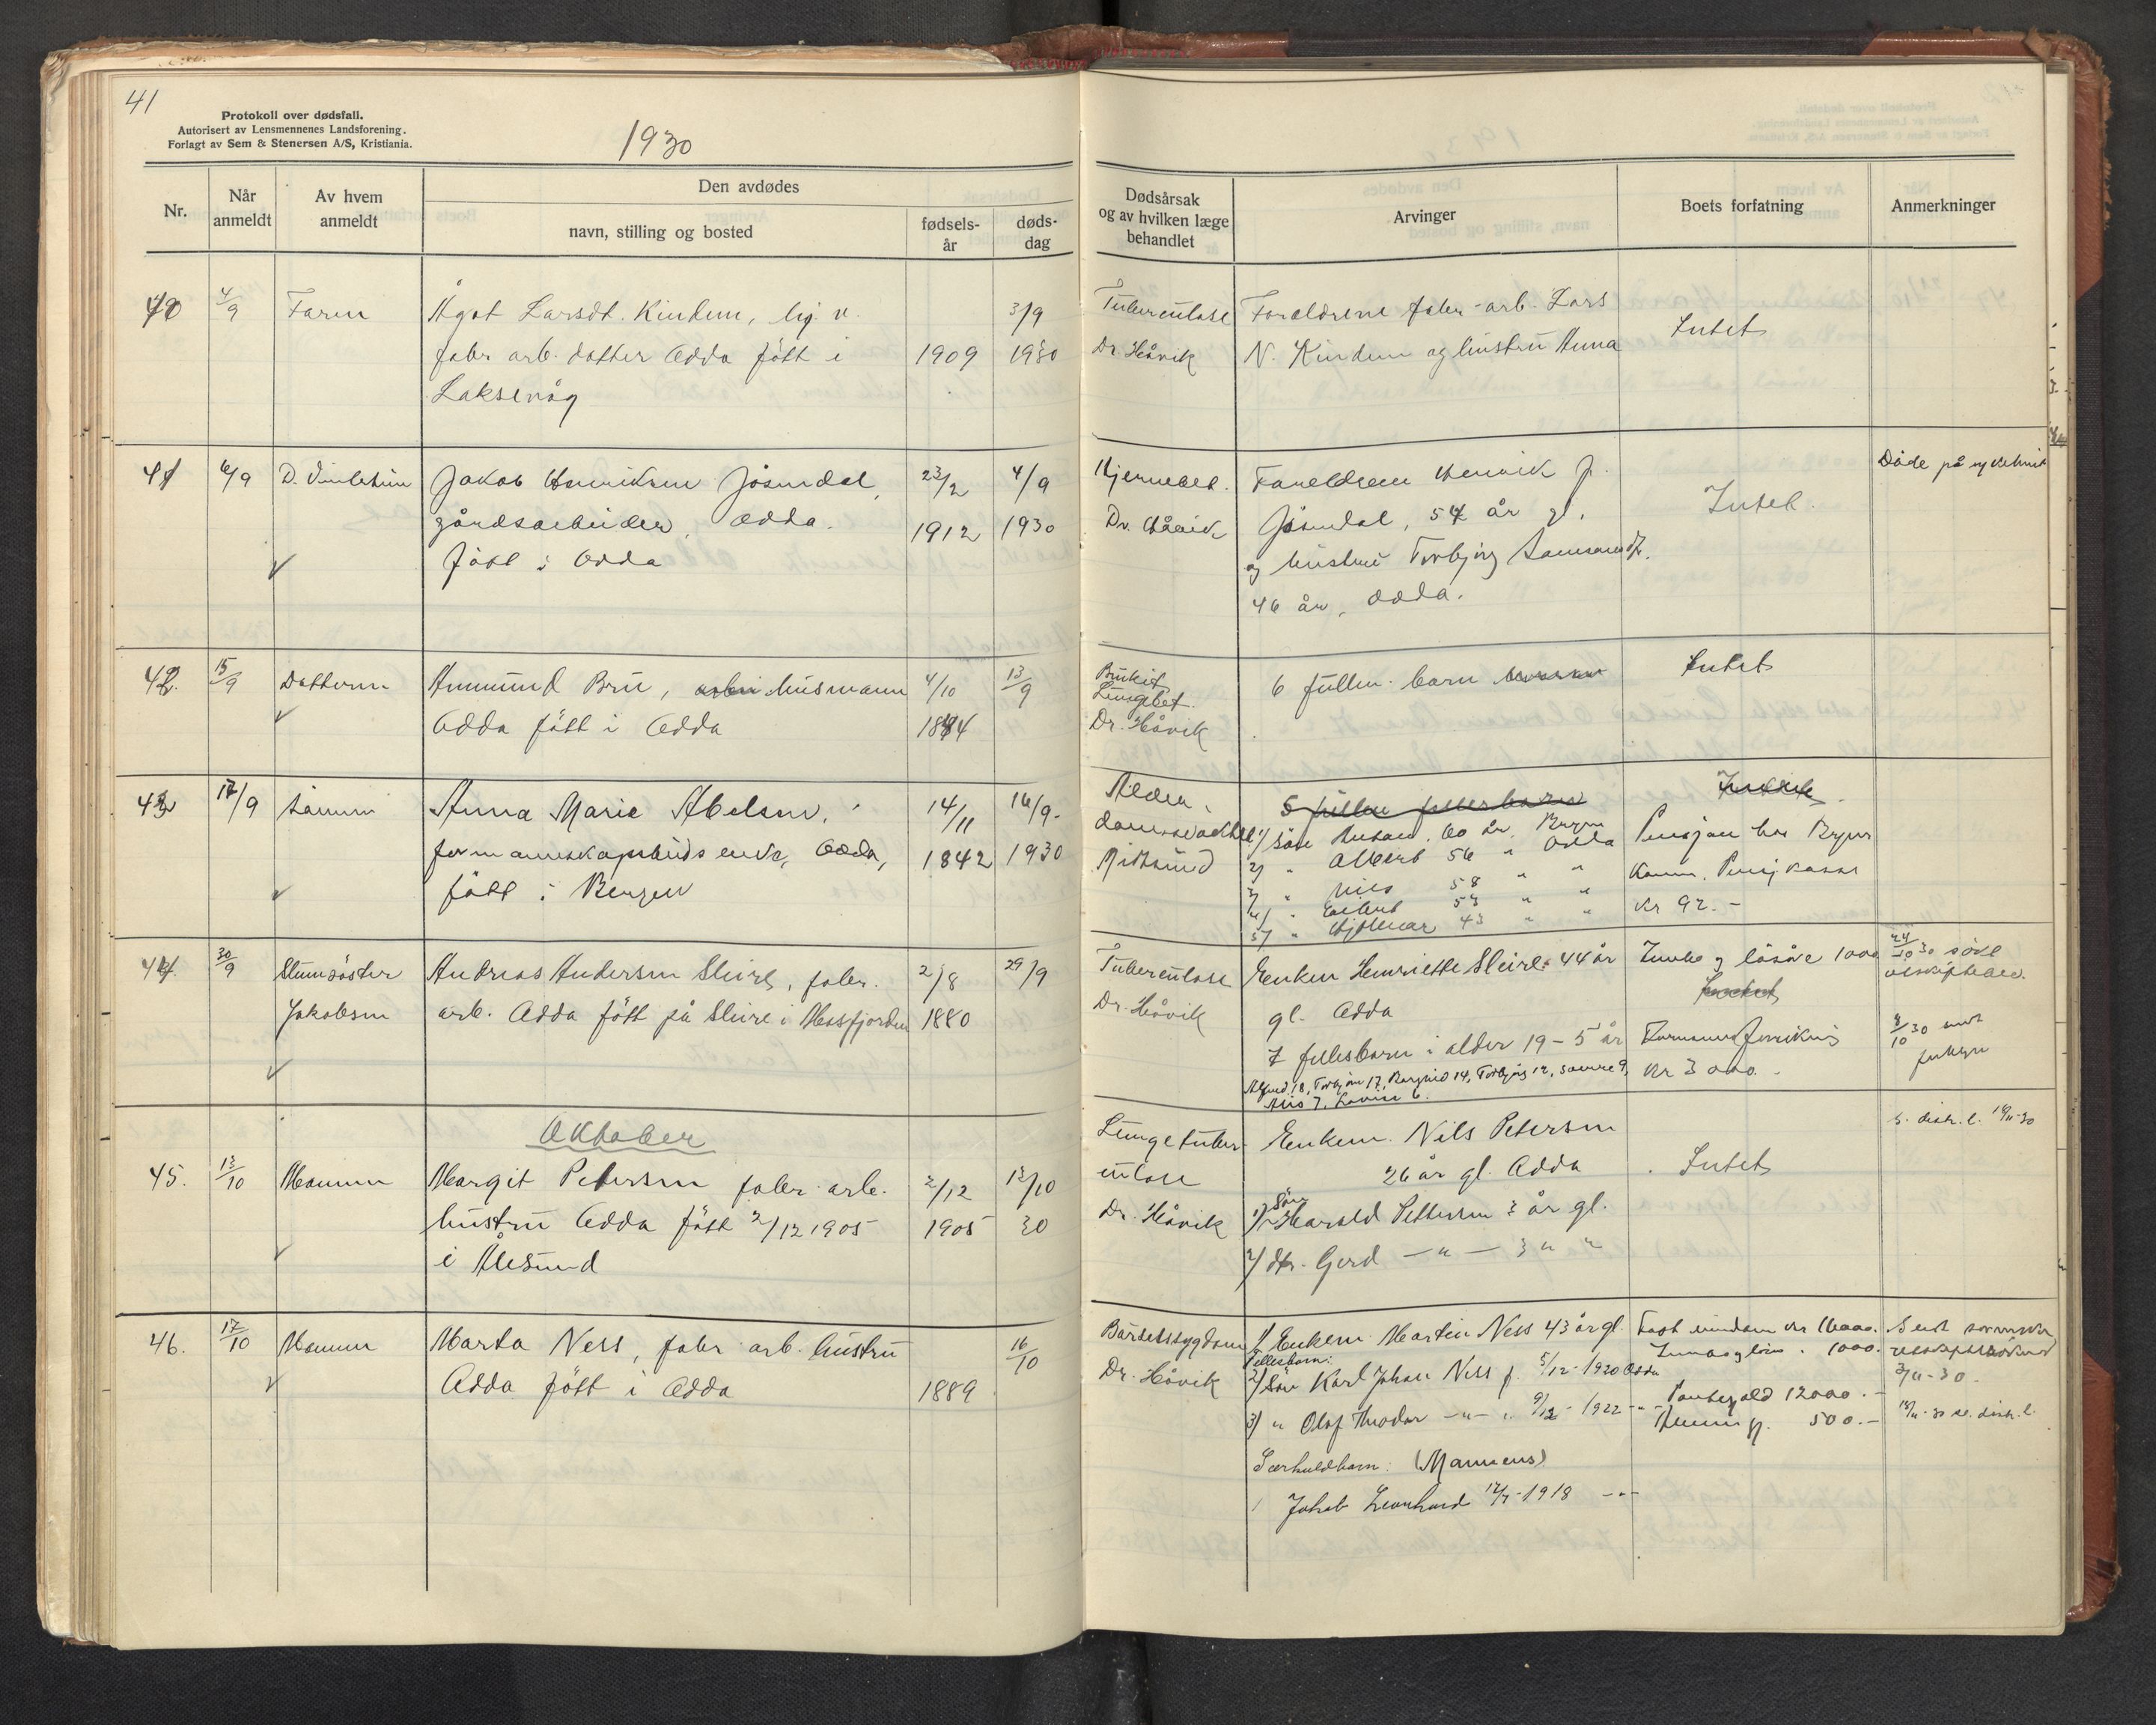 41
Protokoll over dødsfall.
Autorisert av Lensmennenes Landsforening.
Forlagt av Sem & Stenersen A/S, Kristiania.
1930
Nr.
Når anmeldt
Av hvem anmeldt
Den avdødes
navn, stilling og bosted
fødsels-år
døds-dag
Dødsårsak og av hvilken læge behandlet
Arvinger
Boets forfatning
Anmerkninger
40
4/9
Faren
Ågot Larsdt. Kindem, lig. u.
fabr arb. datter Odda født i
Laksevåg
1909
3/9
1930
Tuberculose
Dr. Håvik
Foreldrene fabr-arb. Lars
N. Kindem og hustru Anna
Intet
41
6/9
Jakob Henriksen Jösendal,
gårdsarbeider, Odda.
født i Odda
23/2
1912
4/9
1930
Hjernebet.
Dr. Håvik
Foreldrene Henrik J.
Jösendal, 54 år gl.
og hustru Torbjørg Samsonsdtr.
46 år, Odda.
Intet.
Döde på sykehuset
42.
15/9
Datteren
Ammund Bru, husmann
Odda født i Odda
4/10
1844
13/9
Lungebet.
Dr. Håvik
6 fullm. barn
Intet
43
17/9
Sønnen
Anna Marie Abelsen,
formannskapsbuds enke, Odda,
født i Bergen
14/11
1842
16/9-
1930
Alderdomssvakhet
5
1/ Sön 60 år. Bergen
2/ " Albert 56 " Odda
3/ " Nils 58 " "
4/ " 53 " "
5/ " Hjalmar 43 " "
Pensjon hos Bergens
Komm. Pensj. kasse
Kr 92.-
44.
30/9
Jakobsen
Andreas Andersen Sleire, fabr.
arb. Odda født på Sleire i Masfjorden
2/8
1880
29/9
Tuberculose
Dr. Håvik
Enken Henriette Sleire 44 år
gl. Odda
7 fellesbarn i alder 19-5 år
18, Torbjørn 17, Borghild 14, Torbjørg 12, 9,
Nils 7, Lovise 6.
Innbo og løsøre 1000
Kr 3 000.-
24/10 30 søkt
8/10 30
Oktober
45.
13/10
Mannen
Margit Petersen fabr. arb.
hustru Odda født 2/12 1905
i Ålesund
2/12
1905
12/10
30
Lungetuberculose
Dr. Håvik
Enkem. Nils Petersen
26 år gl. Odda
1/ Sön Harald Pettersen 3 år gl.
2/ dtr. Gerd -"- 3 " "
Intet
s. distr. l.
46.
17/10
Mannen
Marta Ness, fabr. arb. hustru
Odda født i Odda
1889
16/10
Barselssygdom
Dr. Håvik
1/ Enkem. Martin Ness 43 år gl.
Fellesbarn:
2/ Sön Karl Johan Ness f. 5/12-1920 Odda
3/ " Olaf Teodor -"- " 9/12-1922 -"-
Særkuldbarn: (Mannens)
Jakob Leonhard 12/7-1918 -"-
Fast eiendom kr 16000.
Innbo og løsøre " 1000.
Pantegjeld 12000.-
500.-
3/11-30.